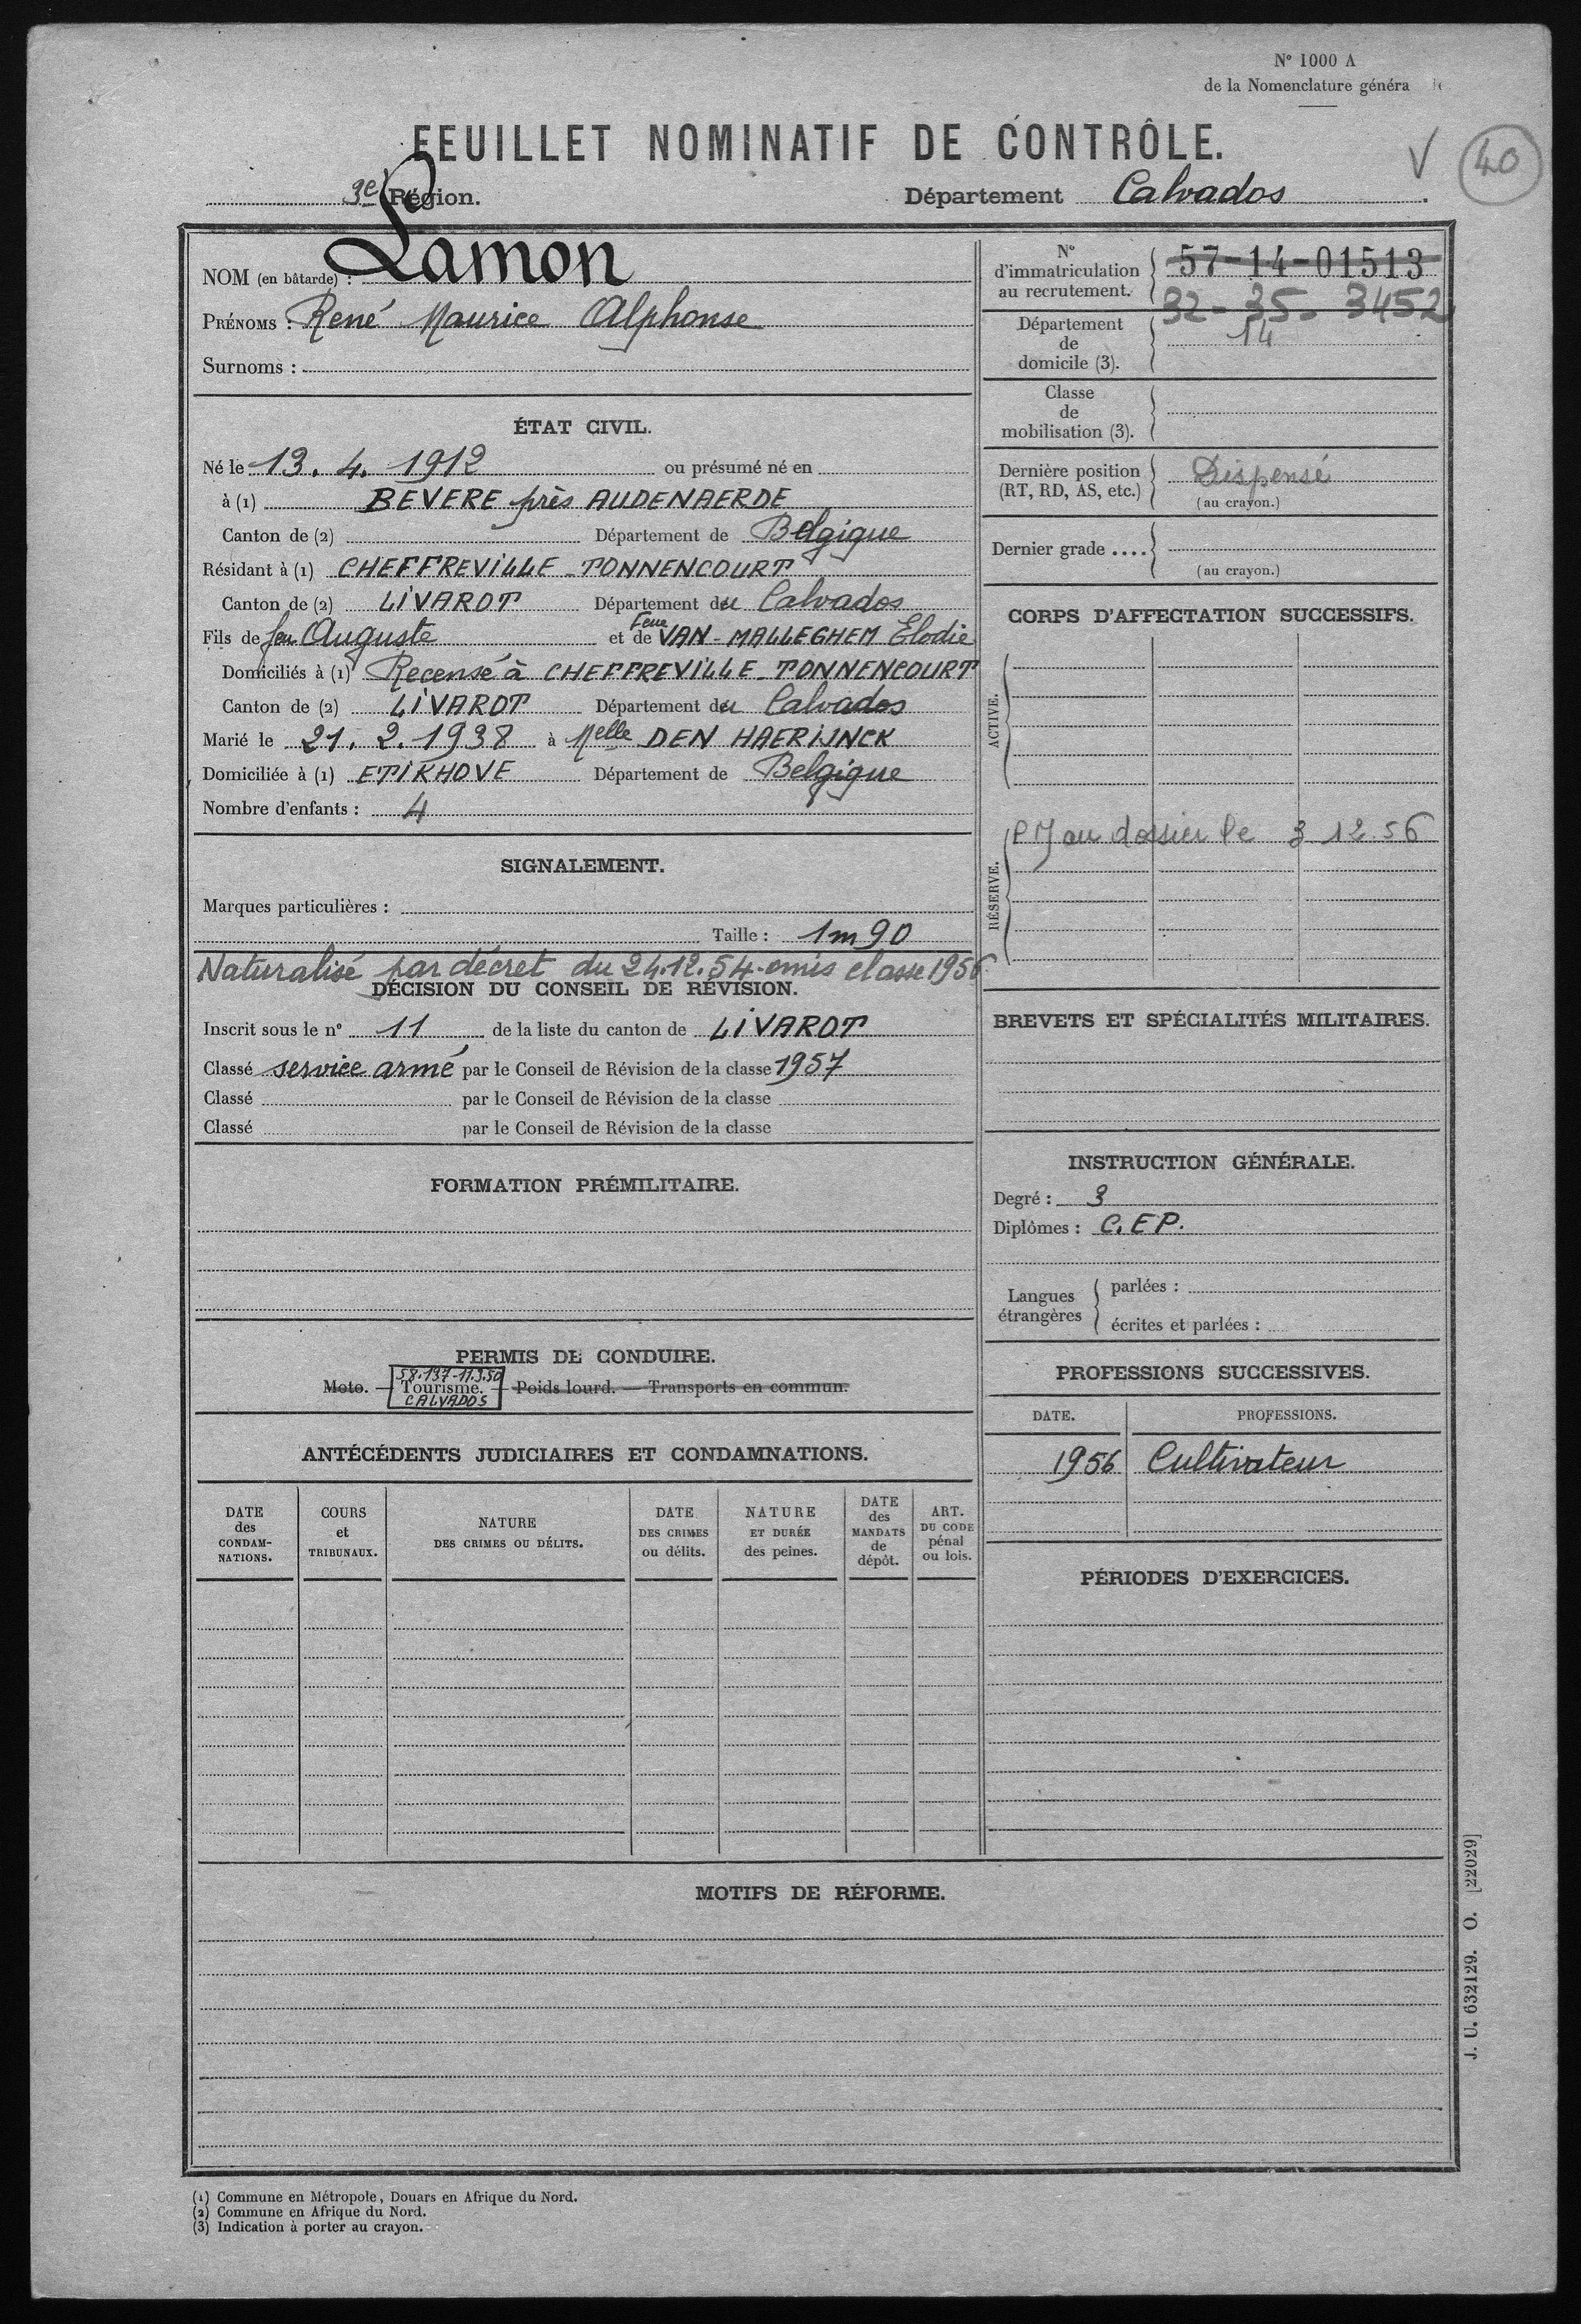 N° 1000 A
de la Nomenclature généra le
FEUILLET NOMINATIF DE CONTRÔLE.
V 40
3e Région.
Département Calvados
NOM (en bâtarde) : Lamon
PRÉNOMS : René Maurice Alphonse
Surnoms :
ÉTAT CIVIL.
Né le 13. 4. 1912 ou présumé né en
à (1) BEVERE près AUDENAERDE
Canton de (2) Département de Belgique
Résidant à (1) CHEFFREVILLE - TONNENCOURT
Canton de (2) LIVAROT Département du Calvados
Fils de feu Auguste et de Feue VAN-MALLEGHEM Elodie
Domiciliés à (1) Recensé à CHEFFREVILLE - TONNENCOURT
Canton de (2) LIVAROT Département du Calvados
Marié le 21. 2. 1938 à Melle DEN HAERIJNCK
Domiciliée à (1) ETIKHOVE Département de Belgique
Nombre d'enfants : 4
SIGNALEMENT.
Marques particulières :
Taille : 1m90
Naturalisé par décret du 24.12.54. omis classe 1956
DÉCISION DU CONSEIL DE RÉVISION.
Inscrit sous le n° 11 de la liste du canton de LIVAROT
Classé service armé par le Conseil de Révision de la classe 1957
Classé par le Conseil de Révision de la classe
Classé par le Conseil de Révision de la classe
FORMATION PRÉMILITAIRE.
PERMIS DE CONDUIRE.
58.137-11.3.50
Moto. — Tourisme. — Poids lourd. — Transports en commun.
CALVADOS
ANTÉCÉDENTS JUDICIAIRES ET CONDAMNATIONS.
DATE des CONDAM-NATIONS.
COURS et TRIBUNAUX.
NATURE DES CRIMES OU DÉLITS.
DATE DES CRIMES ou délits.
NATURE ET DURÉE des peines.
DATE des MANDATS de dépôt.
ART. DU CODE pénal ou lois.
N° d'immatriculation au recrutement. 57-14-01513
32-35-3452
Département de domicile (3). 14
Classe de mobilisation (3).
Dernière position (RT, RD, AS, etc.) Dispensé
(au crayon.)
Dernier grade ....
(au crayon.)
CORPS D'AFFECTATION SUCCESSIFS.
ACTIVE.
RÉSERVE.
PJ au dossier le 3 12 56
BREVETS ET SPÉCIALITÉS MILITAIRES.
INSTRUCTION GÉNÉRALE.
Degré : 3
Diplômes : C.EP.
Langues étrangères
parlées :
écrites et parlées :
PROFESSIONS SUCCESSIVES.
DATE. PROFESSIONS.
1956 Cultivateur
PÉRIODES D'EXERCICES.
MOTIFS DE RÉFORME.
J. U. 632129. O. [22029]
(1) Commune en Métropole, Douars en Afrique du Nord.
(2) Commune en Afrique du Nord.
(3) Indication à porter au crayon.